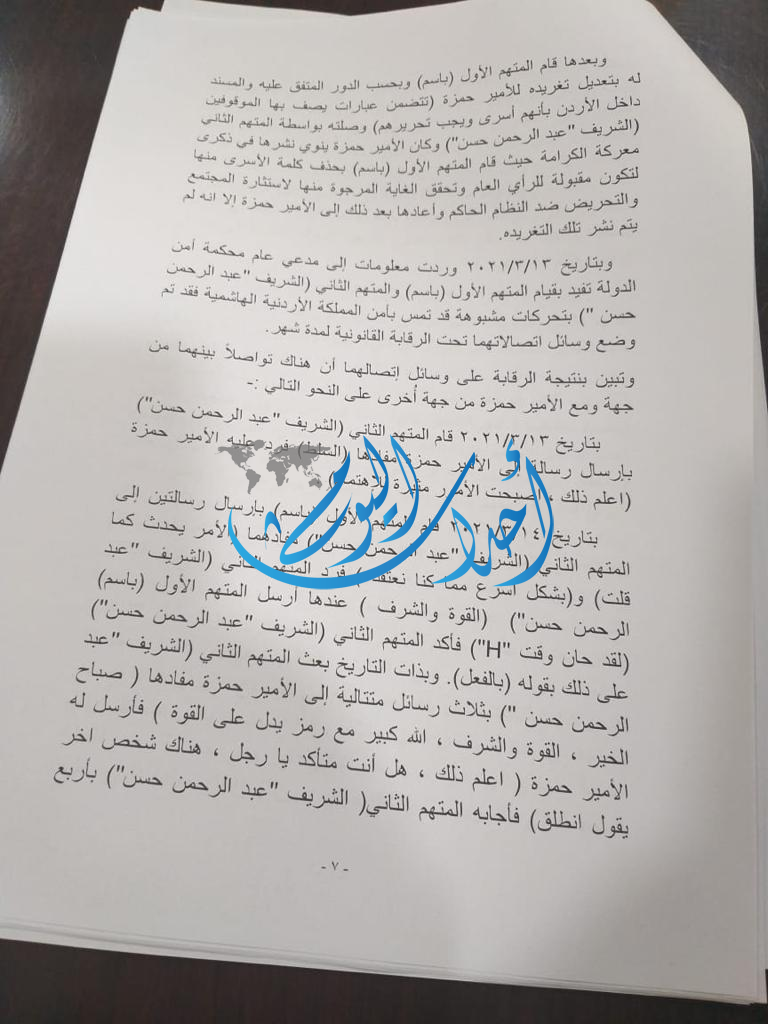 وبعدها قام المتهم الأول (باسم) وبحسب الدور المتفق عليه والمسند
له بتعديل تغريده للأمير حمزة (تتضمن عبارات يصف بها الموقوفين
داخل الأردن بأنهم أسرى ويجب تحريرهم) وصلته بواسطة المتهم الثاني
(الشريف "عبد الرحمن حسن") وكان الأمير حمزة ينوي نشرها في ذكرى
معركة الكرامة حيث قام المتهم الأول (باسم) بحذف كلمة الأسرى منها
لتكون مقبولة للرأي العام وتحقق الغاية المرجوة منها لاستثارة المجتمع
والتحريض ضد النظام الحاكم وأعادها بعد ذلك إلى الأمير حمزة إلا انه لم
يتم نشر تلك التغريده.
وبتاريخ ٢٠٢١/٣/١٣ وردت معلومات إلى مدعي عام محكمة أمن
الدولة تفيد بقيام المتهم الأول (باسم) والمتهم الثاني (الشريف "عبد الرحمن
حسن ") بتحركات مشبوهة قد تمس بأمن المملكة الأردنية الهاشمية فقد تم
وضع وسائل اتصالاتهما تحت الرقابة القانونية لمدة شهر.
وتبين بنتيجة الرقابة على وسائل إتصالهما أن هناك تواصلاً بينهما من
جهة ومع الأمير حمزة من جهة أخرى على النحو التالي :-
بتاريخ ٢٠٢١/٣/١٣ قام المتهم الثاني (الشريف "عبد الرحمن حسن")
بإرسال رسالة إلى الأمير حمزة مفادها (السلط) فرد عليه الأمير حمزة
(اعلم ذلك ، أصبحت الأمور مثيرة للاهتمام)
بتاريخ ٢٠٢١/٣/١٤ قام المتهم الأول (باسم) بإرسال رسالتين إلى
المتهم الثاني (الشريف "عبد الرحمن حسن") مفادهما (الأمر يحدث كما
قلت) و(بشكل أسرع مما كنا نعتقد) فرد المتهم الثاني (الشريف "عبد
الرحمن حسن") (القوة والشرف ) عندها أرسل المتهم الأول (باسم)
(لقد حان وقت "H") فأكد المتهم الثاني (الشريف "عبد الرحمن حسن")
على ذلك بقوله (بالفعل). وبذات التاريخ بعث المتهم الثاني (الشريف "عبد
الرحمن حسن ") بثلاث رسائل متتالية إلى الأمير حمزة مفادها ( صباح
الخير ، القوة والشرف ، الله كبير مع رمز يدل على القوة ) فأرسل له
الأمير حمزة ( اعلم ذلك ، هل أنت متأكد يا رجل ، هناك شخص اخر
يقول انطلق) فأجابه المتهم الثاني( الشريف "عبد الرحمن حسن") بأربع
- ٧ -
أحداث اليوم